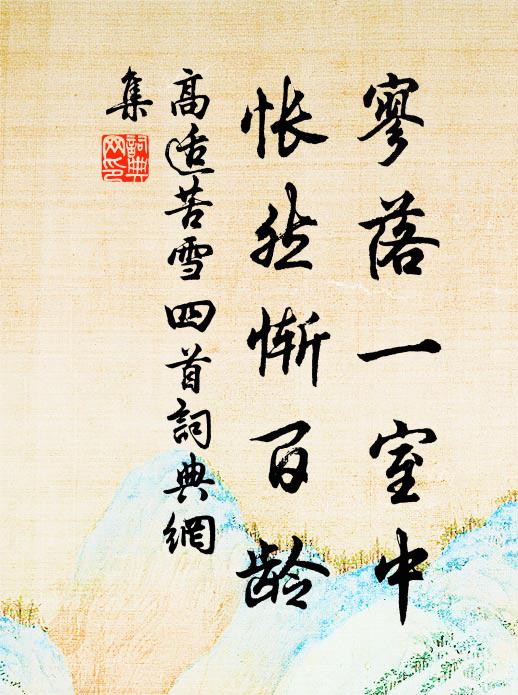 寥落一室中
怅然惭百龄
高适苦雪四首詞典網
集
詞典
网印